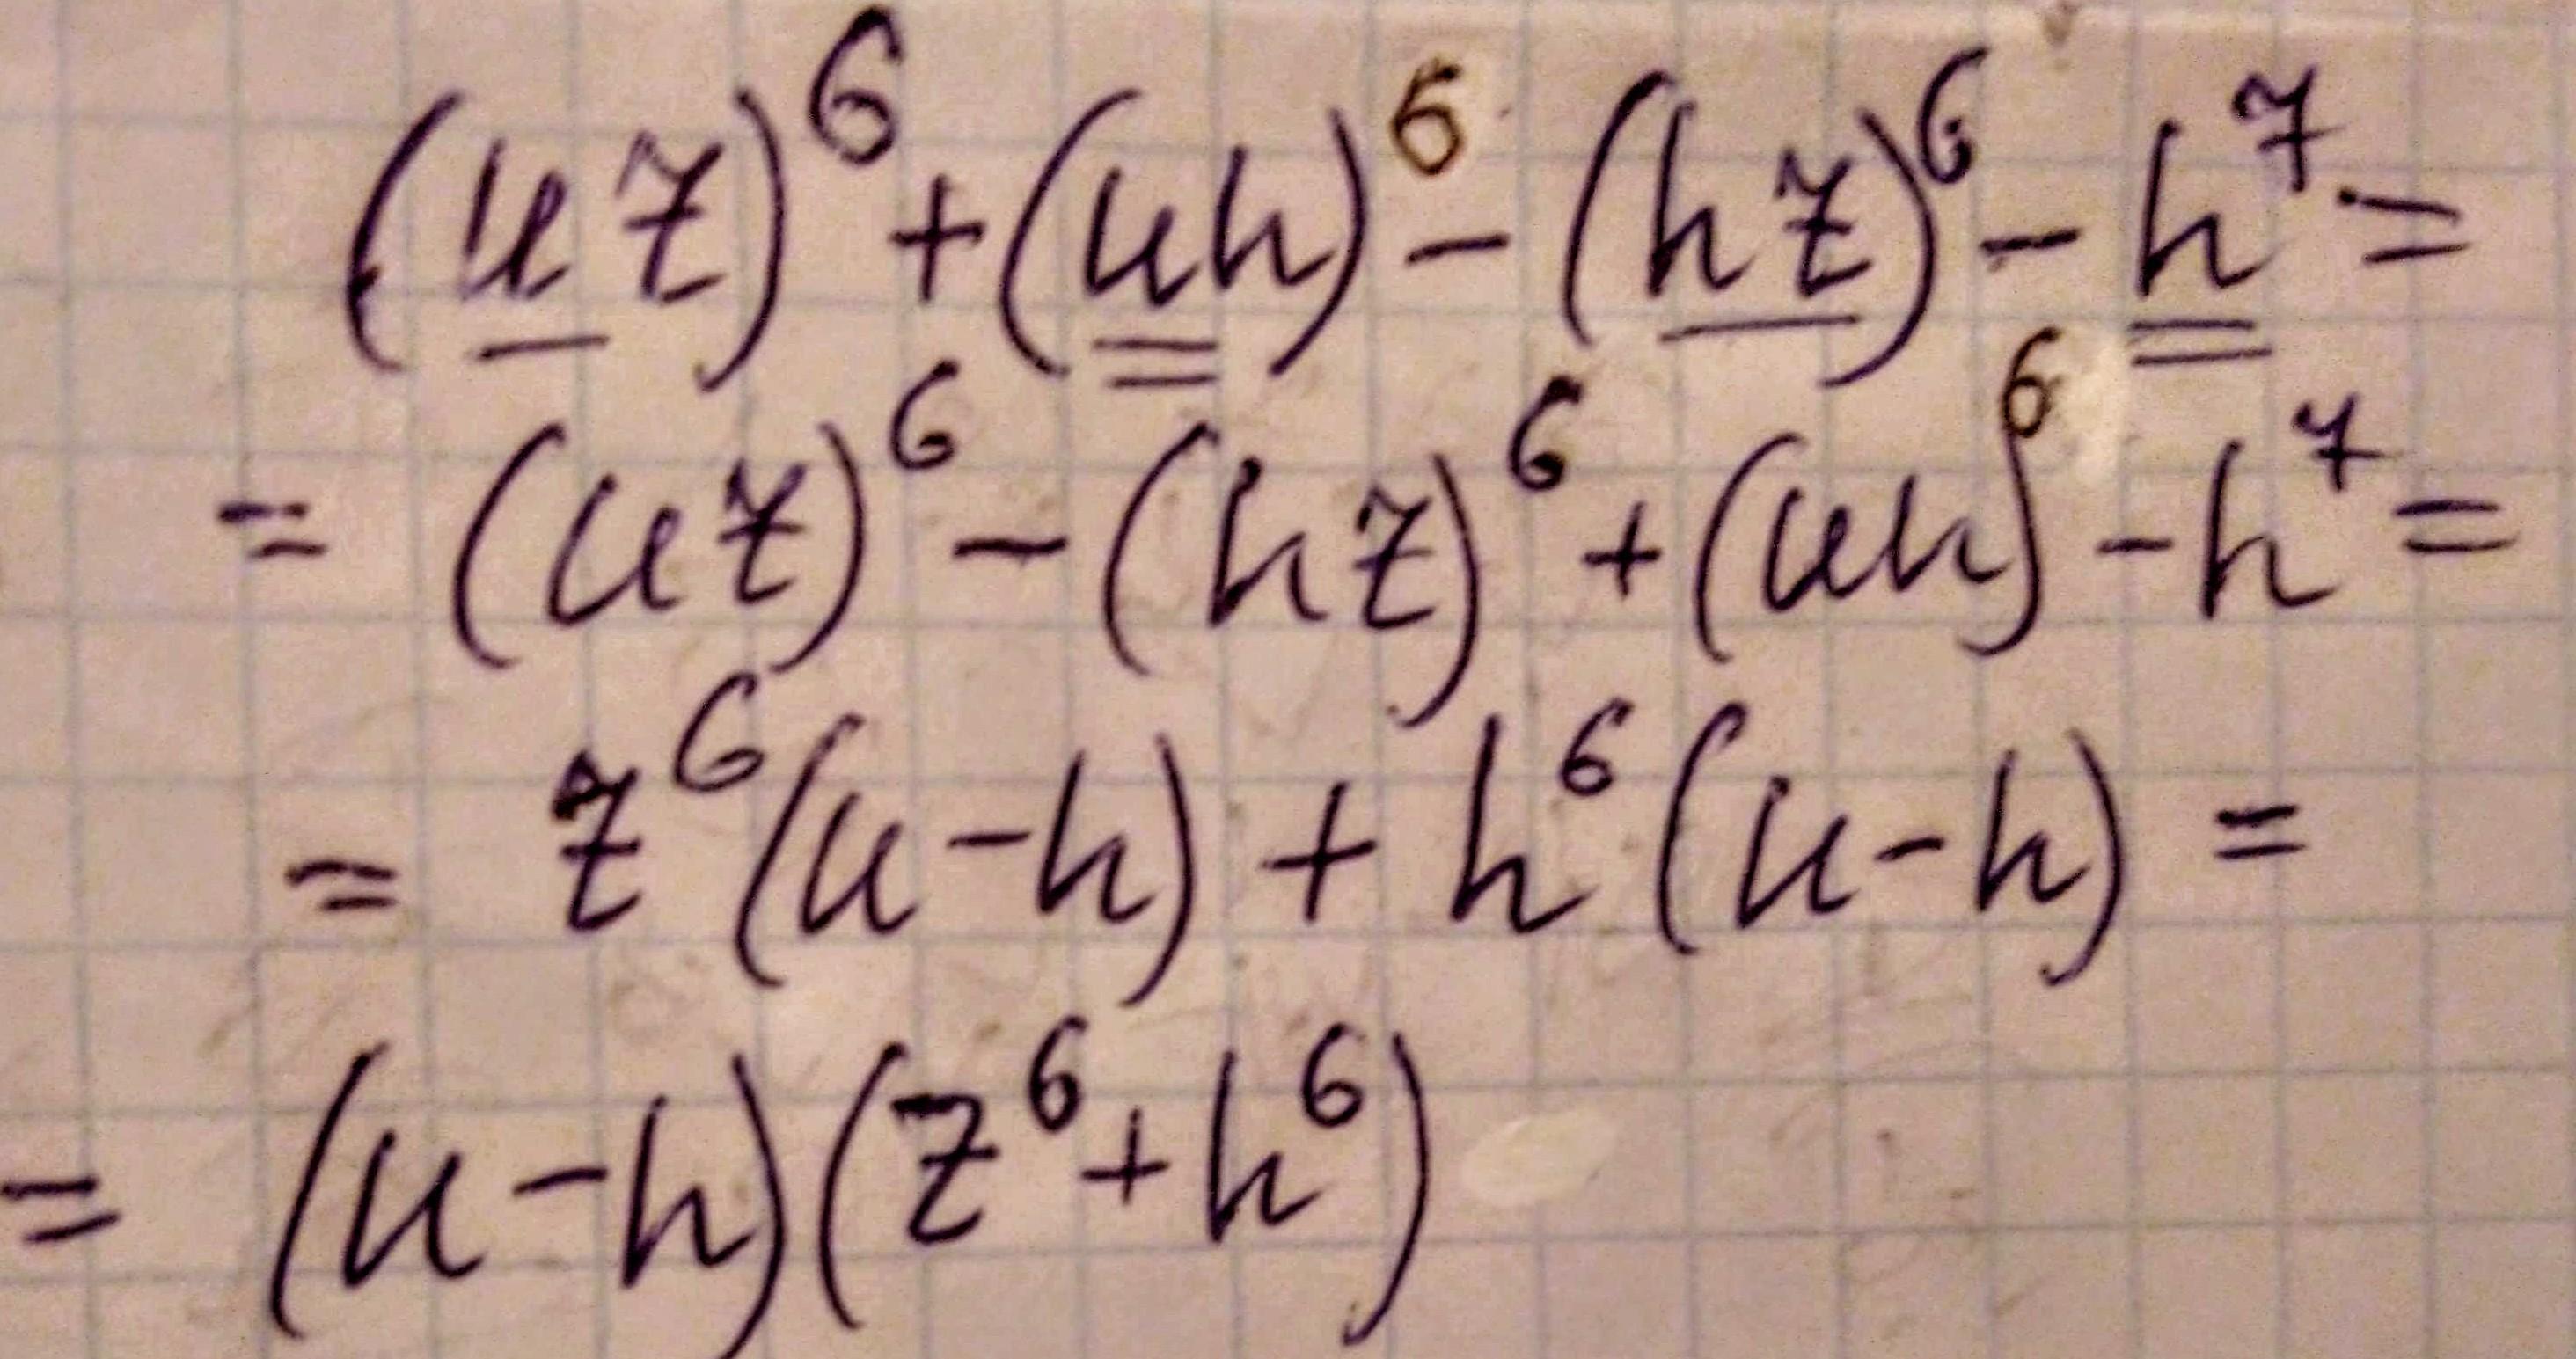 (uz)⁶ + (uh)⁶ - (hz)⁶ - h⁷ =
= (uz)⁶ - (hz)⁶ + (uh)⁶ - h⁷ =
= z⁶(u-h) + h⁶(u-h) =
= (u-h)(z⁶+h⁶)